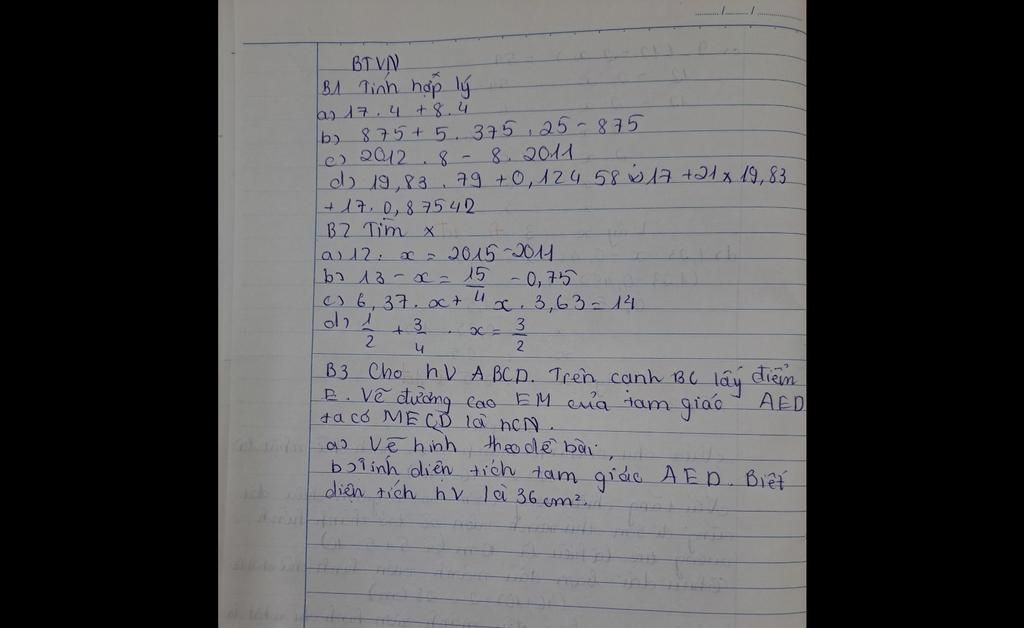 BTVN
B1 Tính hợp lý
a) 17. 4 + 8. 4
b) 875 + 5. 375 . 25 - 875
c) 2012 . 8 - 8. 2011
d) 19,83 . 79 + 0,124 58 17 + 21 x 19,83
+ 17. 0,87542
B2 Tìm x
a) 12: x = 2015 - 2011
b) 13 - x = 15/4 - 0,75
c) 6,37. x + x. 3,63 = 14
d) 1/2 + 3/4 . x = 3/2
B3 Cho hV ABCD. Trên cạnh BC lấy điểm
E. Vẽ đường cao EM của tam giác AED
ta có MECD là hCN.
a) Vẽ hình theo đề bài,
b) Tính diện tích tam giác AED. Biết
diện tích hV là 36 cm².